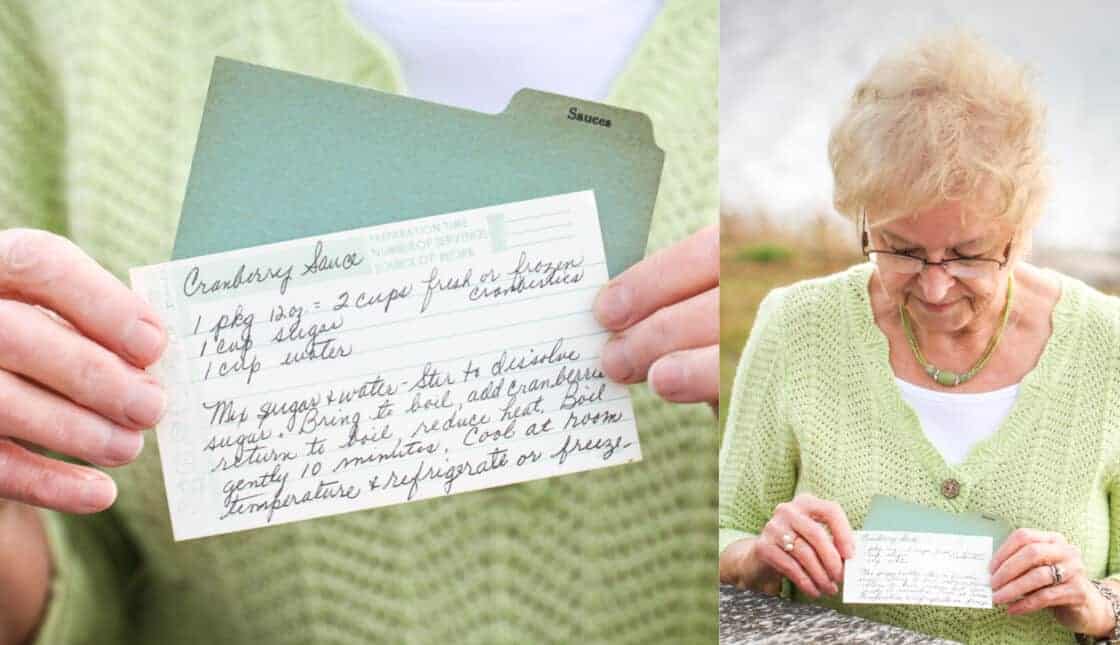 Sauces
PREPARATION TIME
NUMBER OF SERVINGS
SOURCE OF RECIPE
Cranberry Sauce
1 pkg 12 oz = 2 cups fresh or frozen
cranberries
1 cup sugar
1 cup water
Mix sugar & water - Stir to dissolve
sugar. Bring to boil, add cranberries
return to boil, reduce heat. Boil
gently 10 minutes. Cool at room
temperature & refrigerate or freeze.
Cranberry Sauce